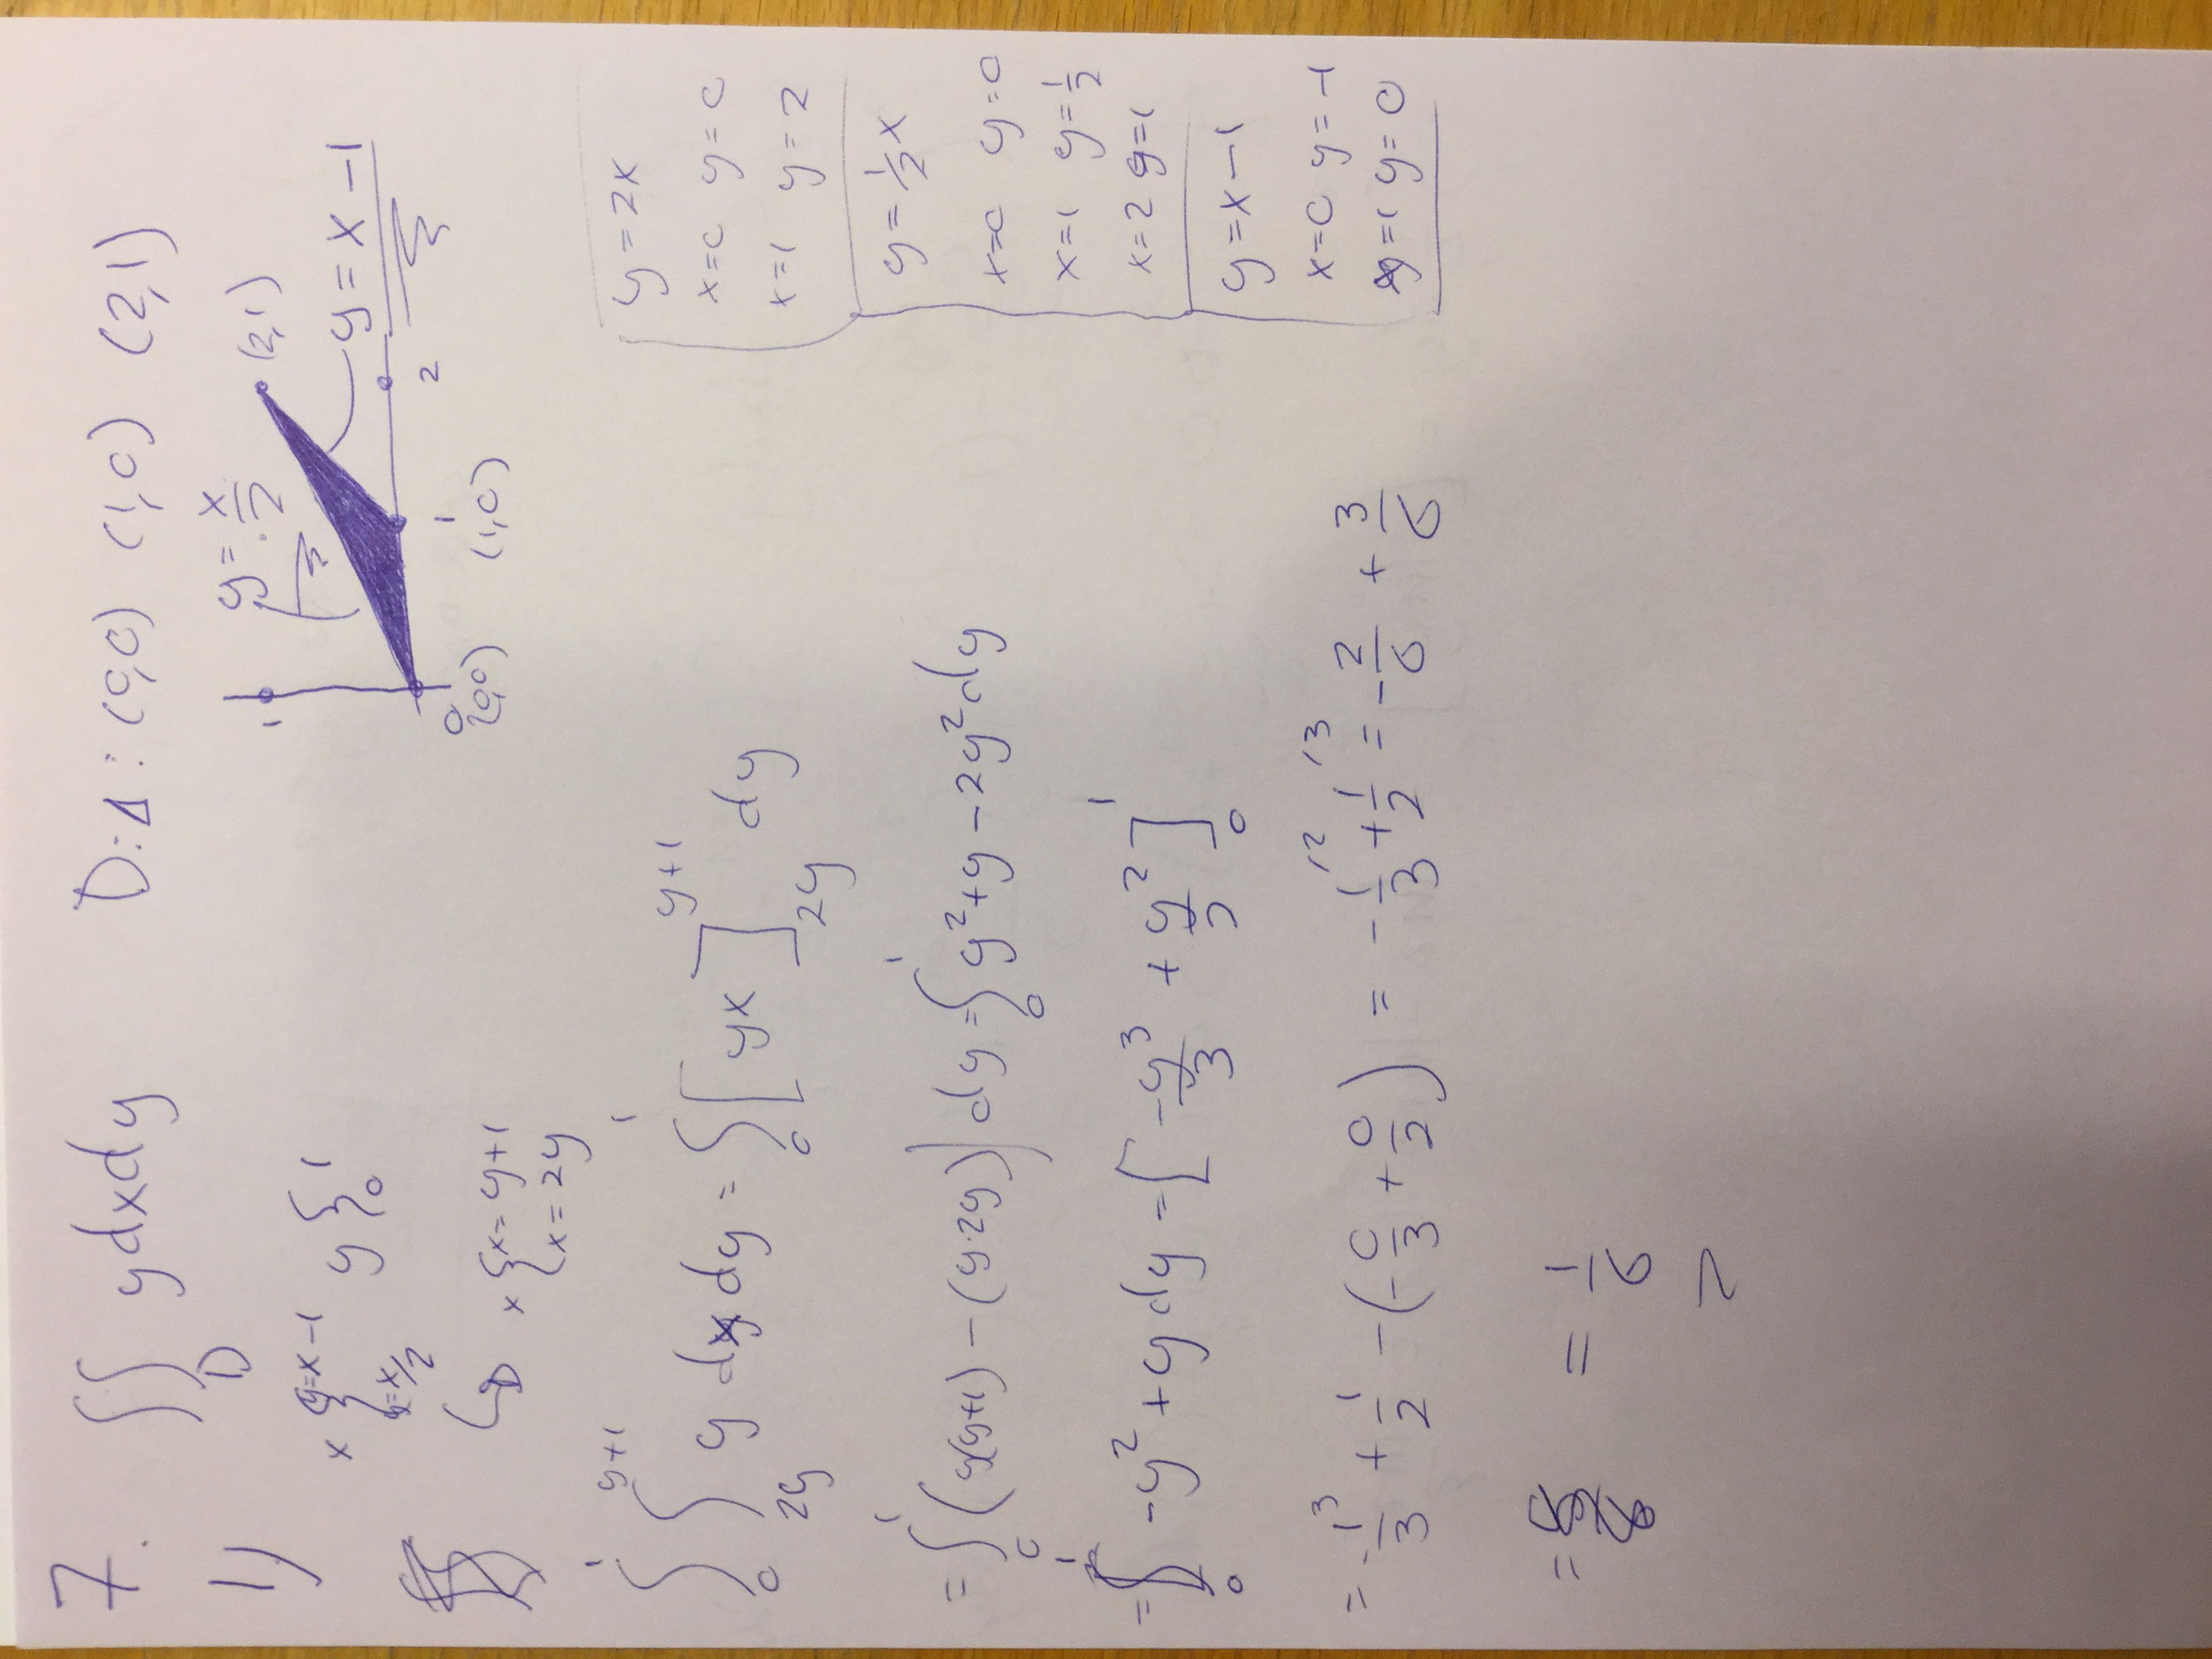 7. ∬_D y dx dy D: Δ: (0,0) (1,0) (2,1)
1)
x { y=x-1 y=x/2 y { 1 0
↳ x { x= y+1 x= 2y
1 y= x/2 (2,1)
y = x -1
0 1 2
(0,0) (1,0)
∫_0^1 ∫_{2y}^{y+1} y dx dy = ∫_0^1 [ yx ]_{2y}^{y+1} dy
= ∫_0^1 (y(y+1) - (y·2y)) dy = ∫_0^1 y² + y - 2y² dy
= ∫_0^1 -y² + y dy = [ -y³/3 + y²/2 ]_0^1
= -1³/3 + 1/2 - (-0/3 + 0/2) = -1/3 ^{/2} + 1/2 ^{/3} = -2/6 + 3/6
= = 1/6
y = 2x
x=0 y=0
x=1 y=2
y= ½x
x=0 y=0
x=1 y=½
x=2 y=1
y=x-1
x=0 y=-1
x=1 y=0